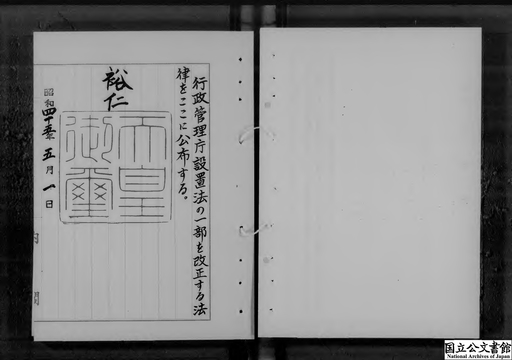 行政管理庁設置法の一部を改正する法
律をここに公布する。
裕仁
天皇
御璽
昭和四十五年五月一日
国立公文書館
National Archives of Japan